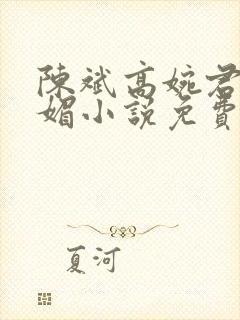 陳斌高婉君
媚小說免費
夏河